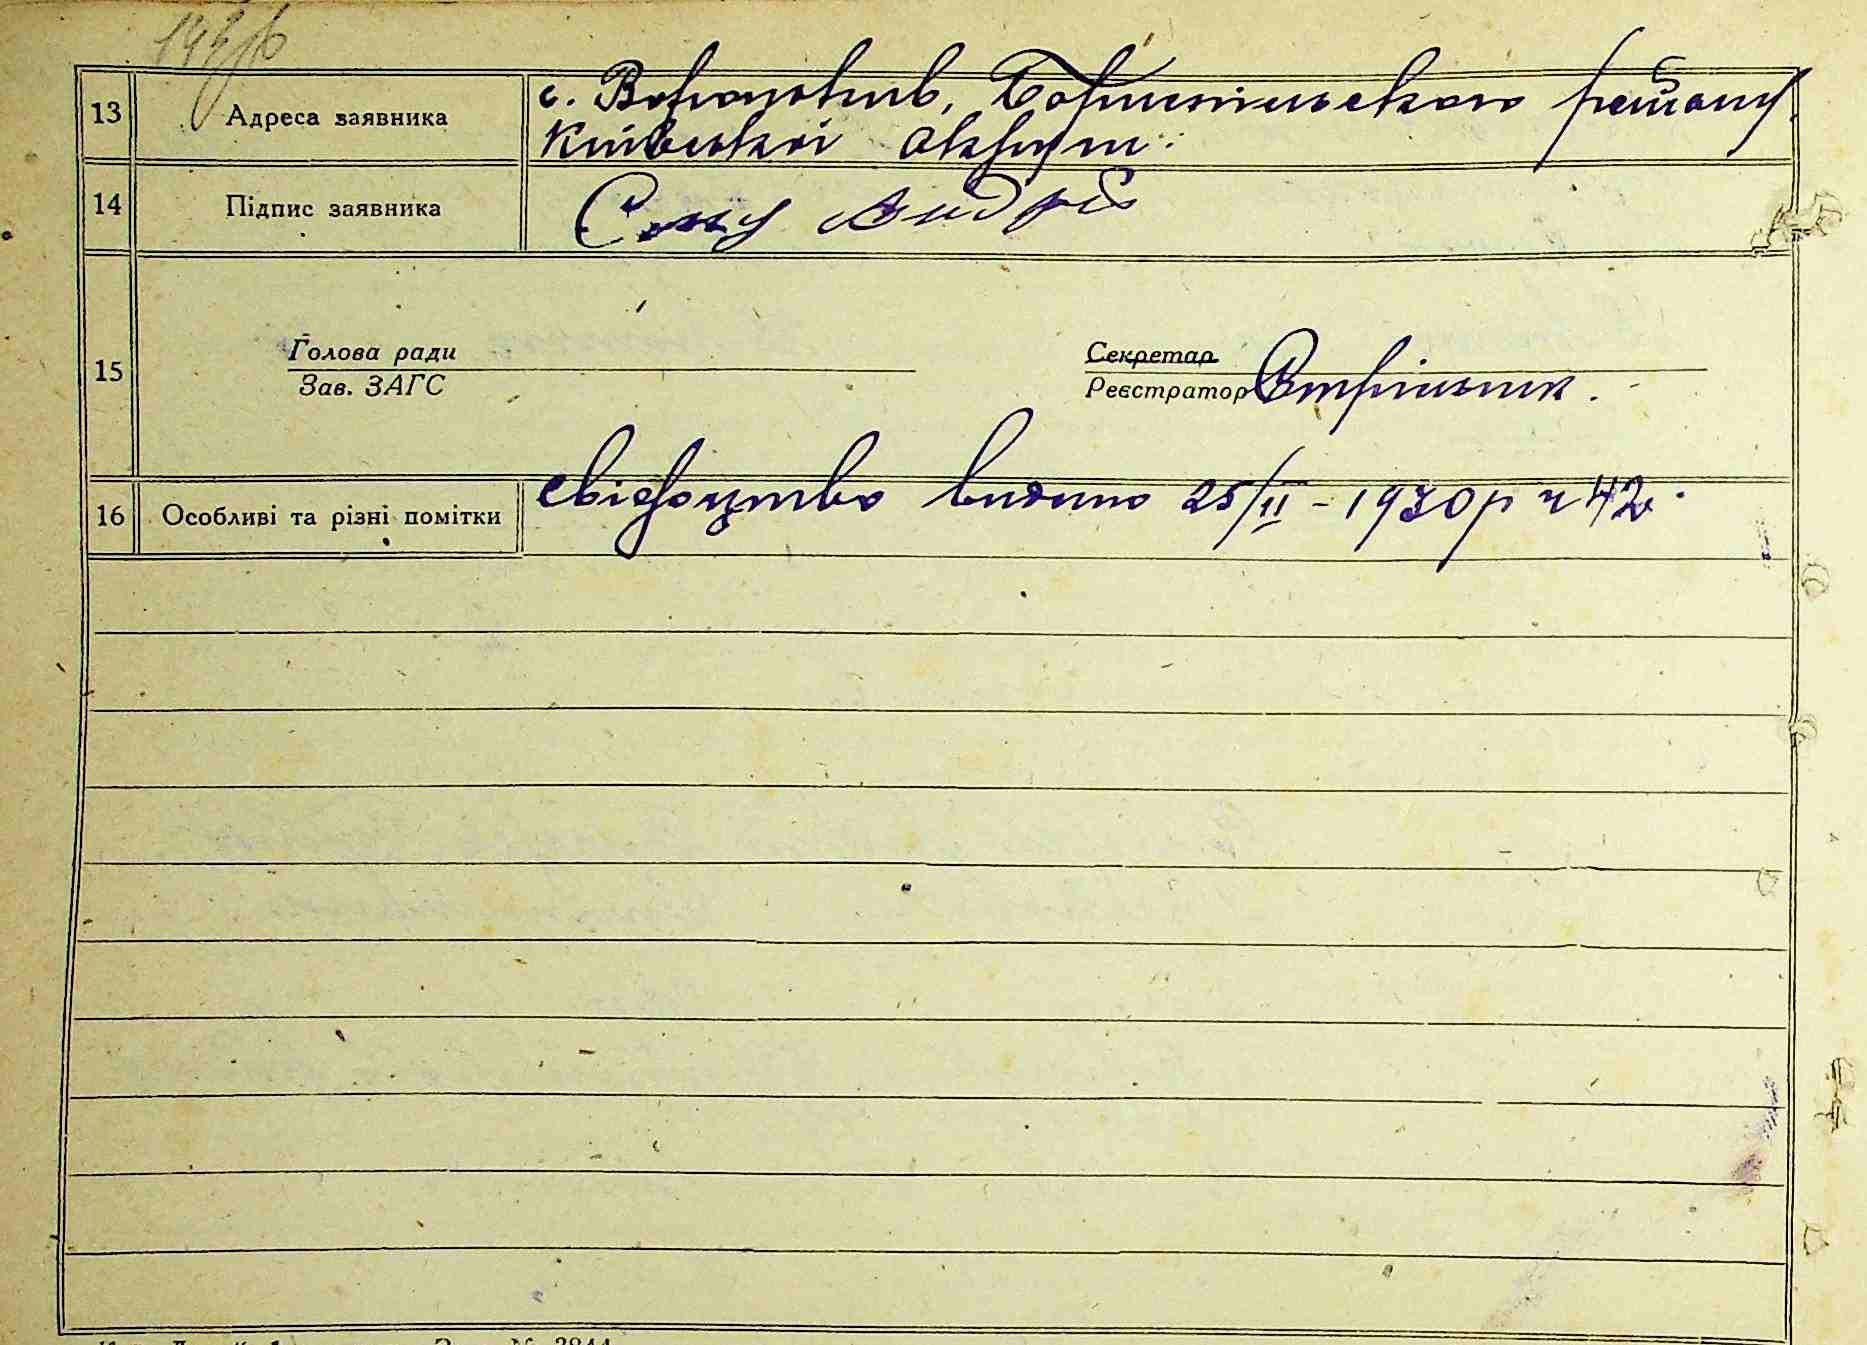 13 Адреса заявника с. Вороньків, Бориспільського району
Київської округи.
14 Підпис заявника Андрій
15 Голова ради
Зав. ЗАГС
Секретар
Реєстратор Стрільник.
16 Особливі та різні помітки свідоцтво видано 25/II - 1930 р ч 42.